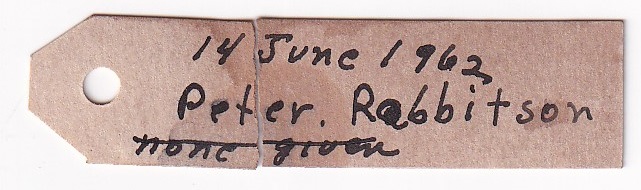 14 June 1962
Peter. Rabbitson
none given